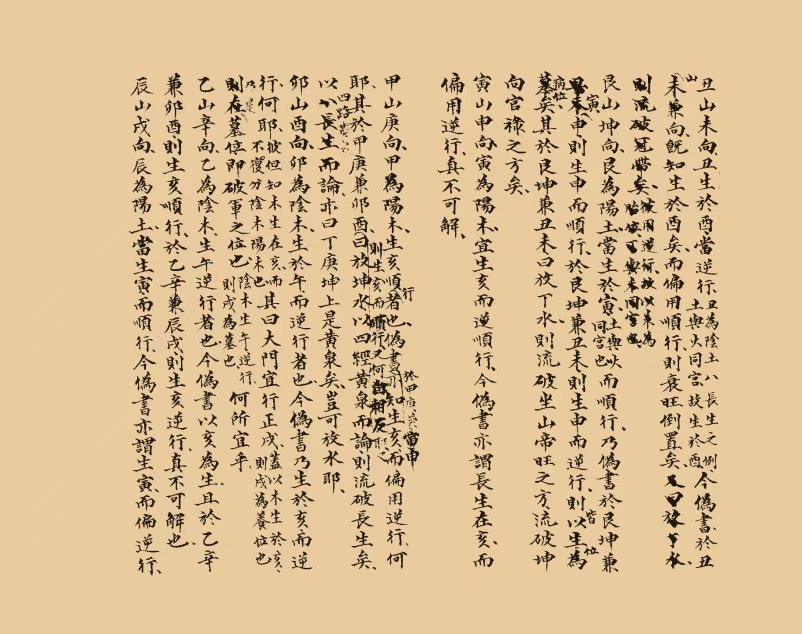 丑山未向丑生於酉當逆行丑為陰土八長生之例土與火同宮故生於酉今偽書於丑
未兼向旣知生於酉矣而偏用順行則衰旺倒置矣又曰放丁水
則流破冠帶矣
艮山坤向艮為陽土當生於寅土與火同宮也而順行乃偽書於艮坤兼
寅申則生申而順行於艮坤兼丑未則生申而逆行則以生為
墓矣其於艮坤兼丑未曰放丁水則流破坐山帝旺之方流破坤
向官祿之方矣
寅山申向寅為陽木宜生亥而逆順行今偽書亦謂長生在亥而
偏用逆行真不可解
甲山庚向甲為陽木生亥順行者也偽書亦知生亥而偏用逆行何
耶其於甲庚兼卯酉曰放坤水以四經黃泉而論則流破長生矣
以八長生而論亦曰丁庚坤上是黃泉矣豈可放水耶
卯山酉向卯為陰木生於午而逆行者也今偽書乃生於亥而逆
行何耶彼但知木生在亥而不變分陰木陽木也其曰大門宜行正戌蓋以木生於亥則戌為養位也
則在墓位即破軍之位也陰木生午逆行則戌為墓也何所宜乎
乙山辛向乙為陰木生午逆行者也今偽書以亥為生且於乙辛
兼卯酉則生亥順行於乙辛兼辰戌則生亥逆行真不可解也
辰山戌向辰為陽土當生寅而順行今偽書亦謂生寅而偏逆行